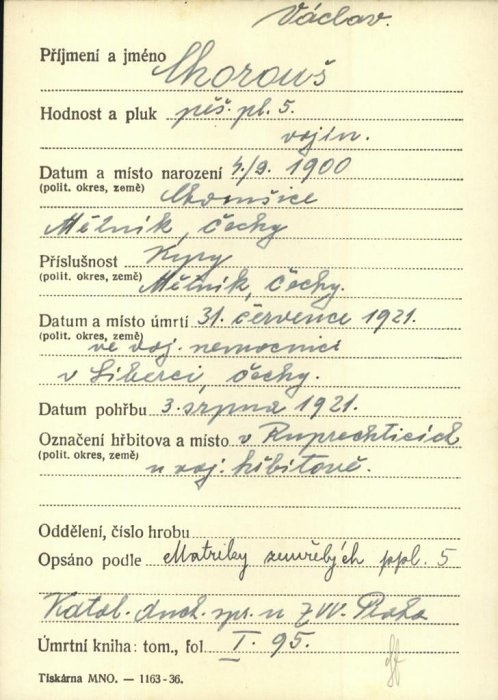 Václav.
Příjmení a jméno Chorouš
Hodnost a pluk pěš. pl. 5.
vojín.
Datum a místo narození 4./9. 1900
(polit. okres, země) Chorušice
Mělník, Čechy
Příslušnost
(polit. okres, země) Mělník, Čechy.
Datum a místo úmrtí 31. července 1921.
(polit. okres, země) ve voj. nemocnici
v Liberci, Čechy.
Datum pohřbu 3. srpna 1921.
Označení hřbitova a místo v Ruprechticích
(polit. okres, země) n voj. hřbitově.
Oddělení, číslo hrobu
Opsáno podle Matriky zemřelých ppl. 5
Katol. duch. spr. u ZVV. Praha
Úmrtní kniha: tom., fol I. 95.
Tiskárna MNO. — 1163-36.